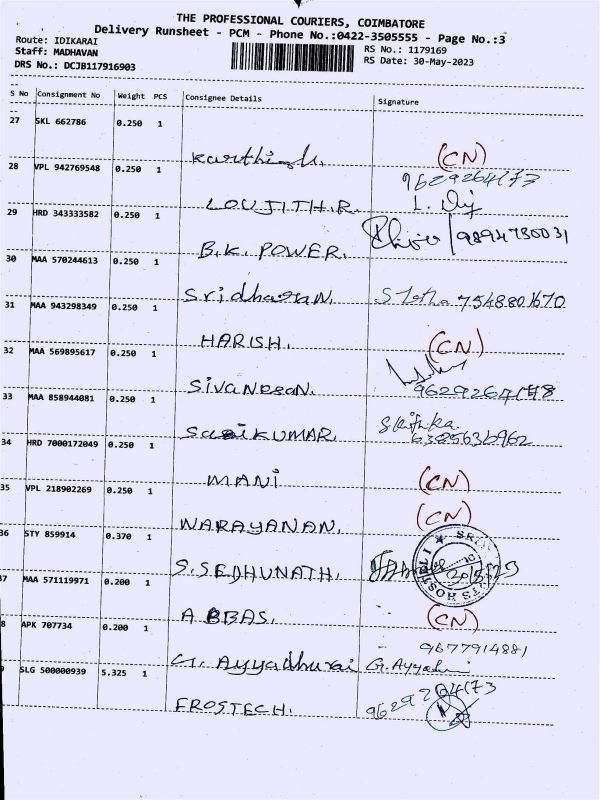 THE PROFESSIONAL COURIERS, COIMBATORE
Delivery Runsheet - PCM - Phone No.:0422-3505555 - Page No.:3
Route: IDIKARAI
RS No.: 1179169
Staff: MADHAVAN
RS Date: 30-May-2023
DRS No.: DCJB117916903
S No Consignment No Weight PCS Consignee Details Signature
27 SKL 662786 0.250 1
Karthick. (CN)
28 VPL 942769548 0.250 1 9629264173
LOUJITH.R.
29 HRD 343333582 0.250 1
B.K. POWER. 9894780031
30 MAA 570244613 0.250 1
Sridharan. 7548801670
31 MAA 943298349 0.250 1
HARISH. (CN)
32 MAA 569895617 0.250 1
Sivanesan.
33 MAA 858944081 0.250 1
SASIKUMAR. 6385631962
34 HRD 7000172049 0.250 1
MANI (CN)
35 VPL 218902269 0.250 1
NARAYANAN. (CN)
36 STY 859914 0.370 1
S.SEDHUNATH.
37 MAA 571119971 0.200 1
ABBAS. (CN)
8 APK 707734 0.200 1 9677914881
G. Ayyadhurai G. Ayyadhurai
SLG 500000939 5.325 1 9629264173
FROSTECH.